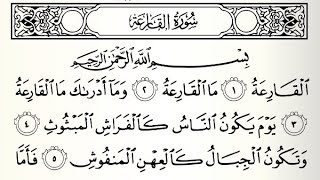 سُورَةُ القَارِعَةِ
بِسْمِ اللَّهِ الرَّحْمَٰنِ الرَّحِيمِ
الْقَارِعَةُ ١ مَا الْقَارِعَةُ ٢ وَمَا أَدْرَىٰكَ مَا الْقَارِعَةُ
٣ يَوْمَ يَكُونُ النَّاسُ كَالْفَرَاشِ الْمَبْثُوثِ ٤
وَتَكُونُ الْجِبَالُ كَالْعِهْنِ الْمَنْفُوشِ ٥ فَأَمَّا